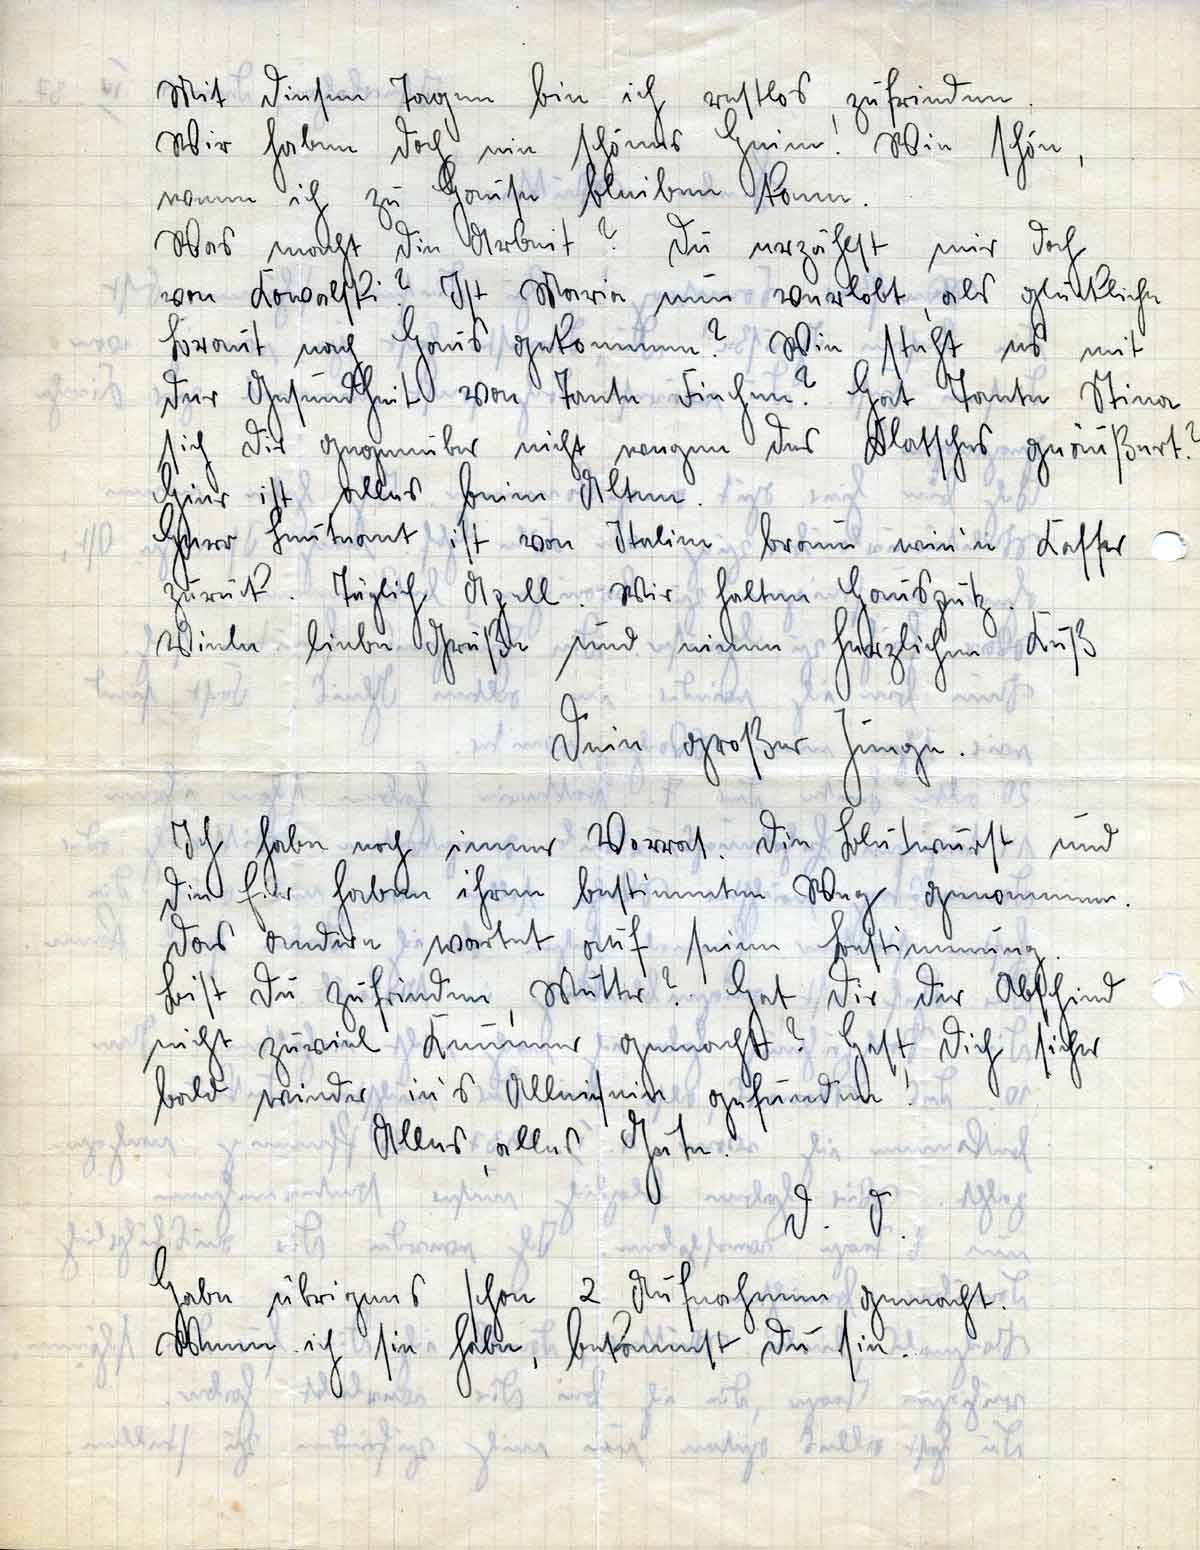 Mit diesen Tagen bin ich restlos zufrieden.
Wir haben doch ein schönes Heim! Wie schön,
wenn ich zu Hause bleiben kann.
Was macht die Arbeit? Du erzählst mir doch
von Kowalski? Ist Maria nun verlobt, als glückliche
Braut nach Haus gekommen? Wie steht es mit
der Gesundheit von Tante Finchen? Hat Tante Stina
sich dir gegenüber nicht wegen des Klatsches geäußert?
Hier ist alles beim Alten.
Herr Leutnant ist von Italien braun wie'n Kaffer
zurück. Täglich Apell. Wir halten Hausputz.
Viele liebe Grüße und einen herzlichen Kuß
Dein großer Junge.
Ich habe noch immer Vorrat. Die Blutwurst und
die Eier haben ihren bestimmten Weg genommen.
Das andere wartet auf seine Bestimmung.
Bist Du zufrieden, Mutter? Hat Dir der Abschied
nicht zuviel Kummer gemacht? Hast Dich sicher
bald wieder in's Alleinsein gefunden!
Alles, alles Gute.
D. J.
Habe übrigens schon 2 Aufnahmen gemacht.
Wenn ich sie habe, bekommst Du sie.